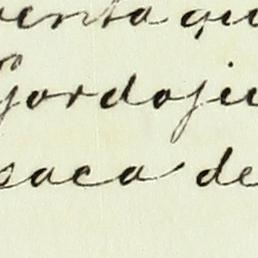 enta qu
Gordoju
saca de